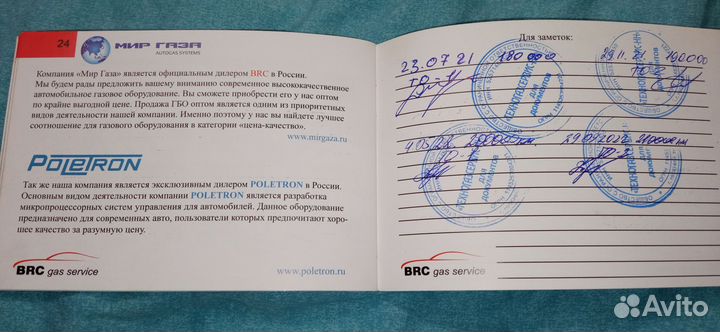 24
МИР ГАЗА
AUTOGAS SYSTEMS
Компания «Мир Газа» является официальным дилером BRC в России.
Мы будем рады предложить вашему вниманию современное высококачественное
автомобильное газовое оборудование. Вы сможете приобрести его у нас оптом
по крайне выгодной цене. Продажа ГБО оптом является одним из приоритетных
видов деятельности нашей компании. Именно поэтому у нас вы найдете лучшее
соотношение для газового оборудования в категории «цена-качество».
www.mirgaza.ru
POLETRON
Так же наша компания является эксклюзивным дилером POLETRON в России.
Основным видом деятельности компании POLETRON является разработка
микропроцессорных систем управления для автомобилей. Данное оборудование
предназначено для современных авто, пользователи которых предпочитают хоро-
шее качество за разумную цену.
BRC gas service
www.poletron.ru
Для заметок:
23.07.21 180 000
29.11.21 190000
для
документов
200000 км.
210000 км
ТО-2
для
документов
для
документов
BRC gas service
Avito